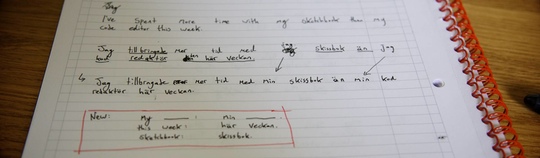 Jag
I've spent more time with my sketchbook than my
code editor this week.
Jag tillbringade mer tid med jag skissbok än jag
kod redaktör här veckan.
Jag tillbringade mer tid med min skissbok än min kod
redaktör här veckan.
New: my ___ : min ___.
this week: här veckan.
sketchbook: skissbok.